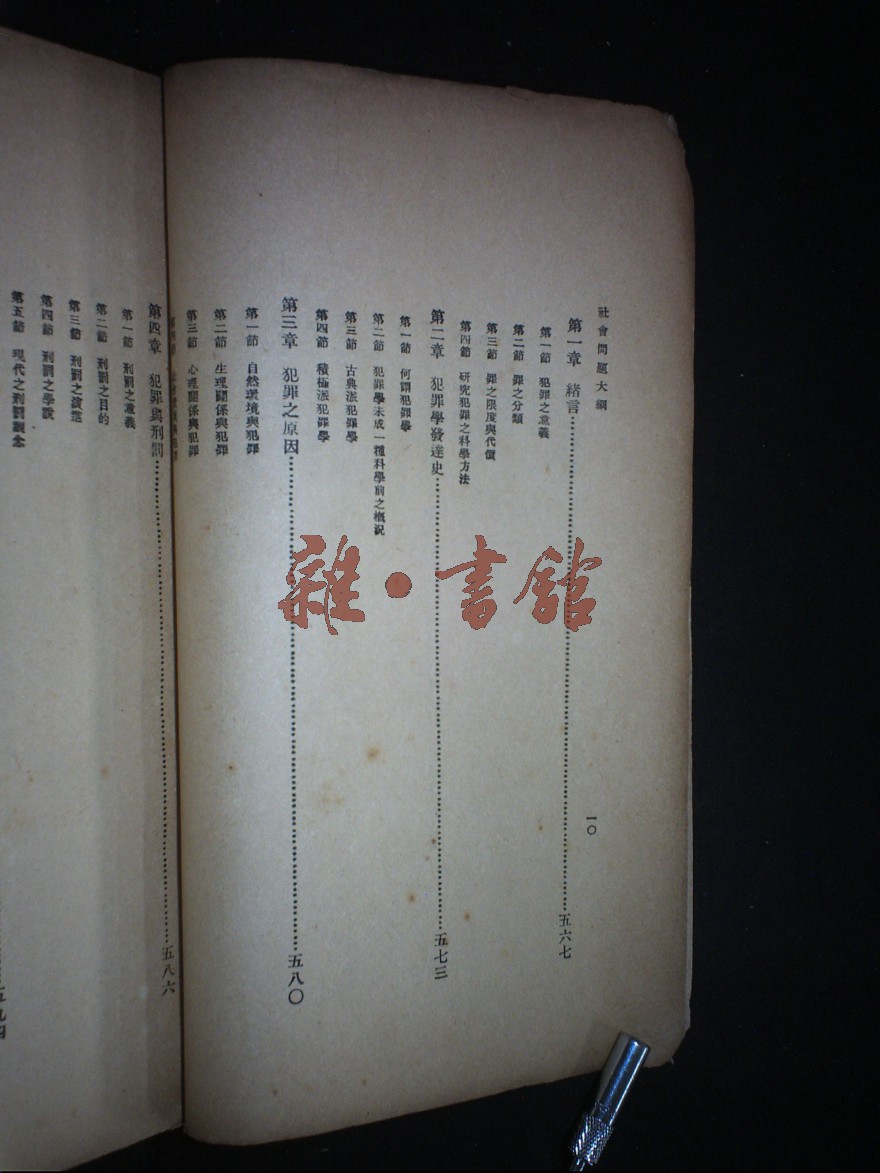 社會問題大綱
一〇
第一章 緒言……五六七
第一節 犯罪之意義
第二節 罪之分類
第三節 罪之限度與代價
第四節 研究犯罪之科學方法
第二章 犯罪學發達史……五七三
第一節 何謂犯罪學
第二節 犯罪學未成一種科學前之概況
第三節 古典派犯罪學
第四節 積極派犯罪學
第三章 犯罪之原因……五八〇
第一節 自然環境與犯罪
第二節 生理關係與犯罪
第三節 心理關係與犯罪
第四章 犯罪與刑罰……五八六
第一節 刑罰之意義
第二節 刑罰之目的
第三節 刑罰之演進
第四節 刑罰之學說
第五節 現代之刑罰觀念
雜·書館